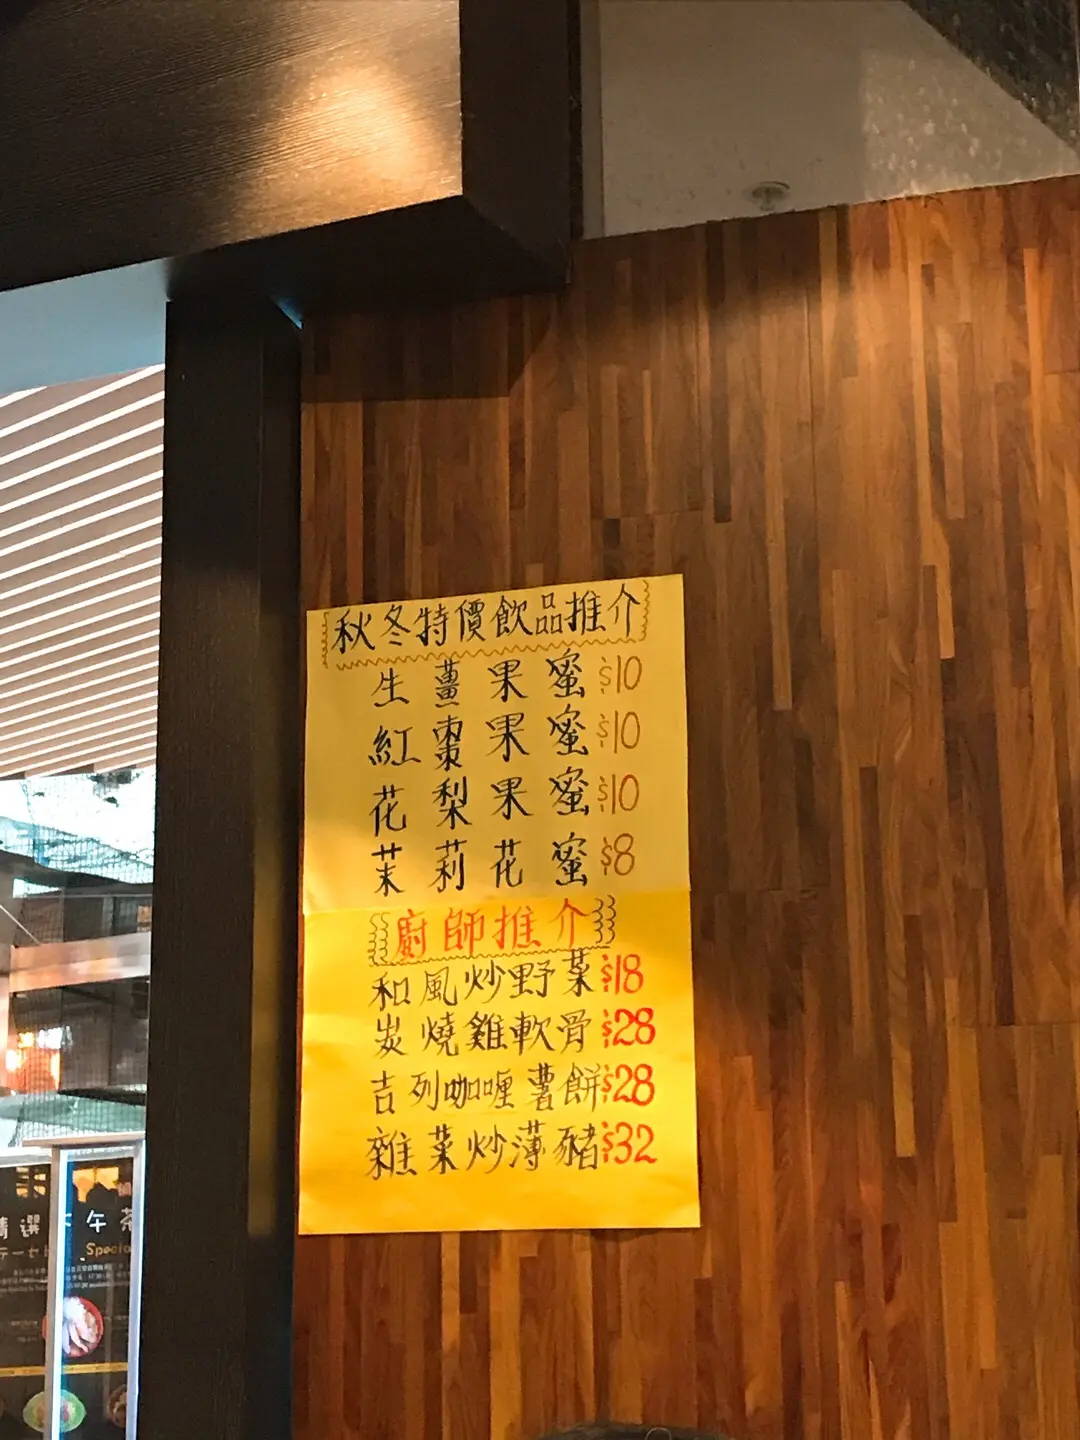 秋冬特價飲品推介
生薑果蜜$10
紅棗果蜜$10
花梨果蜜$10
茉莉花蜜$8
廚師推介
和風炒野菜$18
炭燒雞軟骨$28
吉列咖喱薯餅$28
雜菜炒薄豬$32
精選下午茶
Special